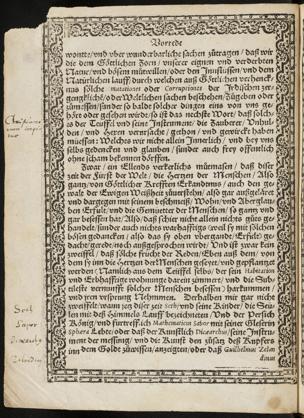 Vorrede
wonte/vnd vber wunderbarliche sachen zůtragen/ daß wir
die dem Göttlichen Zorn/ vnserer eignen vnd verderbten
Natur/vnd bösem můtwillen/oder den Jnflüssen/vnd dem
Natürlichen lauff/durch welchen auß Göttlichen verhenck-
nus solche mutationes oder Corruptiones der Jrdischen zer-
gengklichē/oder Weltlichen sachen beschehen/Zůgeben oder
zůmessen/sunder so balde solcher dingen eins von vns ge-
hört oder gesehen würde/so ist das nechste Wort/daß solchs
der Teüffel vnd seine Jnstrument/die Zauberer/Vnhul-
den/vnd Hexen verursache/gethon/vnd gewürckt haben
můessen/Welches wir nicht allein Jnnerlich/vnd bey vns
selbs gedencken vnd glauben/sunder auch frey offentlich
ohne scham bekennen dörffen.
Zwar ein Ellends verkerlichs můtmaßen/daß diser
zeit der Fürst der Welt/die Hertzen der Menschen/Also
gantz/von Götlicher Kreefften Erkandtnus/auch den ge-
walt der Ewigen Weißheit
vnd dargegen mit seinem beschmeiß/Wohn/vnd Aberglau-
ben Erfült/vnd die Gemuetter der Menschen/so gantz vnd
gar besessen hat/Also/daß schier nicht allein nichts gůts ge-
handelt/sunder auch nichts warhafftigs
bösen gedancken/
dacht/gerede/noch außgesprochen würde/Vnd ist zwar kein
zweiffel/daß solche frücht der Reden/Eben auß dem/von
dem sy inn die Hertzen der Menschen geseyet/vnd gepflantzt
werden/Namlich auß dem Teüffel selbs/der sein Habitation
vnd Erbhaffte wohnunge darein zimmert/vnd die Sub-
tileste vernunfft solcher Menschen besessen/harkummen/
vnd jren vrsprung Nehmmen. Derhalben mir gar nicht
zweiffelt/wann zů diser zeit Seth/vnnd seine Kinder/die Säu-
len mit daß Himmels Lauff bezeichneten/Vnd der Persisch
König/vnd fürtreffich Mathematicus Sabor mit seiner Gleserin
sphæra Lebte/oder daß der Künstlich Dicæarchus/seine Jnstru-
ment der messung/vnd die Kunst den zůsatz deß Kupfers
inn dem Golde zůwissen/anzeigten/oder daß Guilhelmus Zelan
dinus
Seth
Sapor
Dicæarchus
Zelandinus